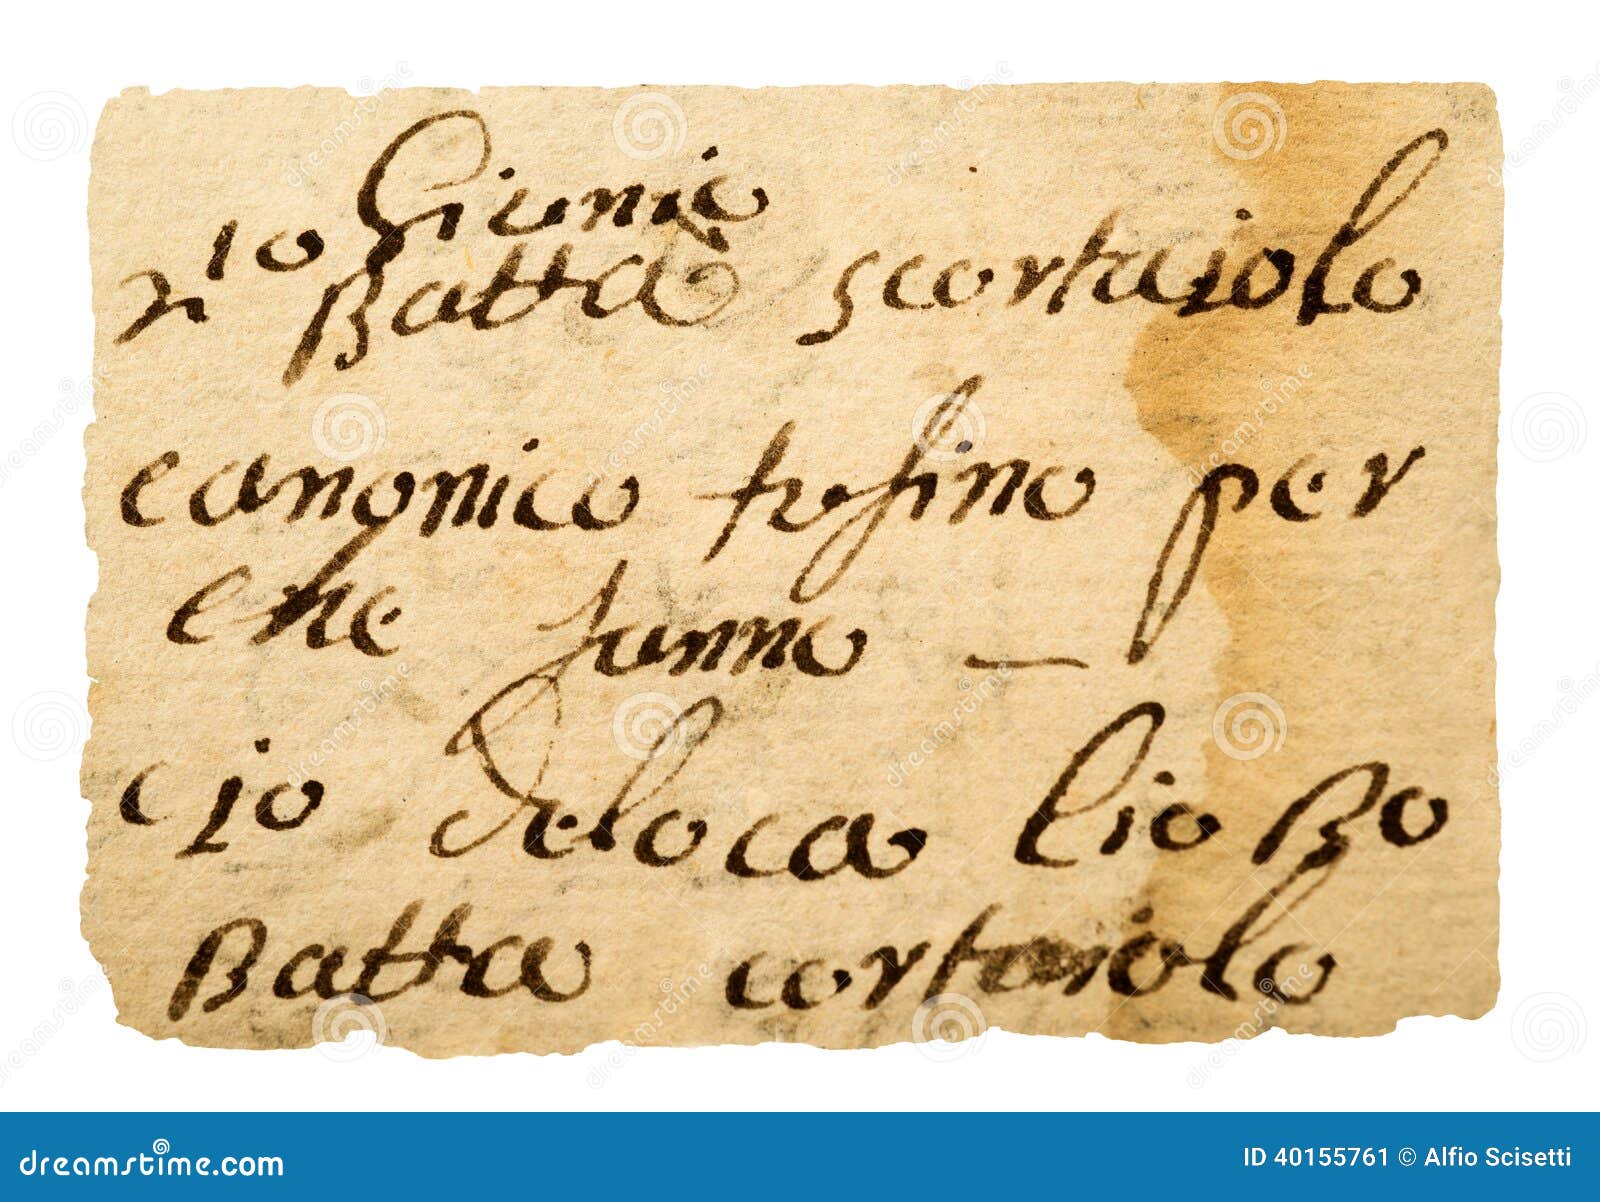 Giunio
10 Batta scortaiolo
canonico trofino per
che fanno —
cio deloca lio Bo
Batta cortaiolo
dreamstime.com
ID 40155761 © Alfio Scisetti